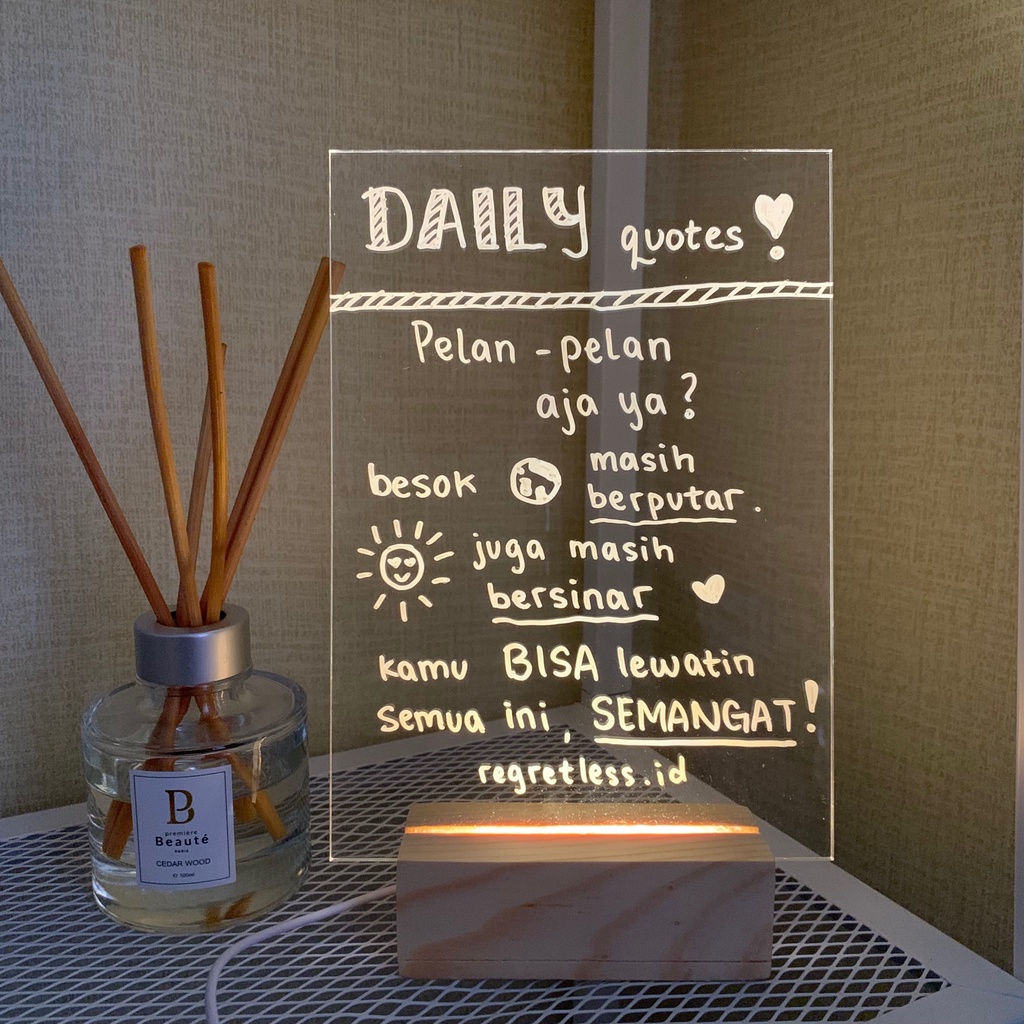 DAILY quotes!
Pelan-pelan
aja ya?
besok masih
berputar.
juga masih
bersinar
kamu BISA lewatin
semua ini, SEMANGAT!
regretless.id
B
première
Beauté
PARIS
CEDAR WOOD